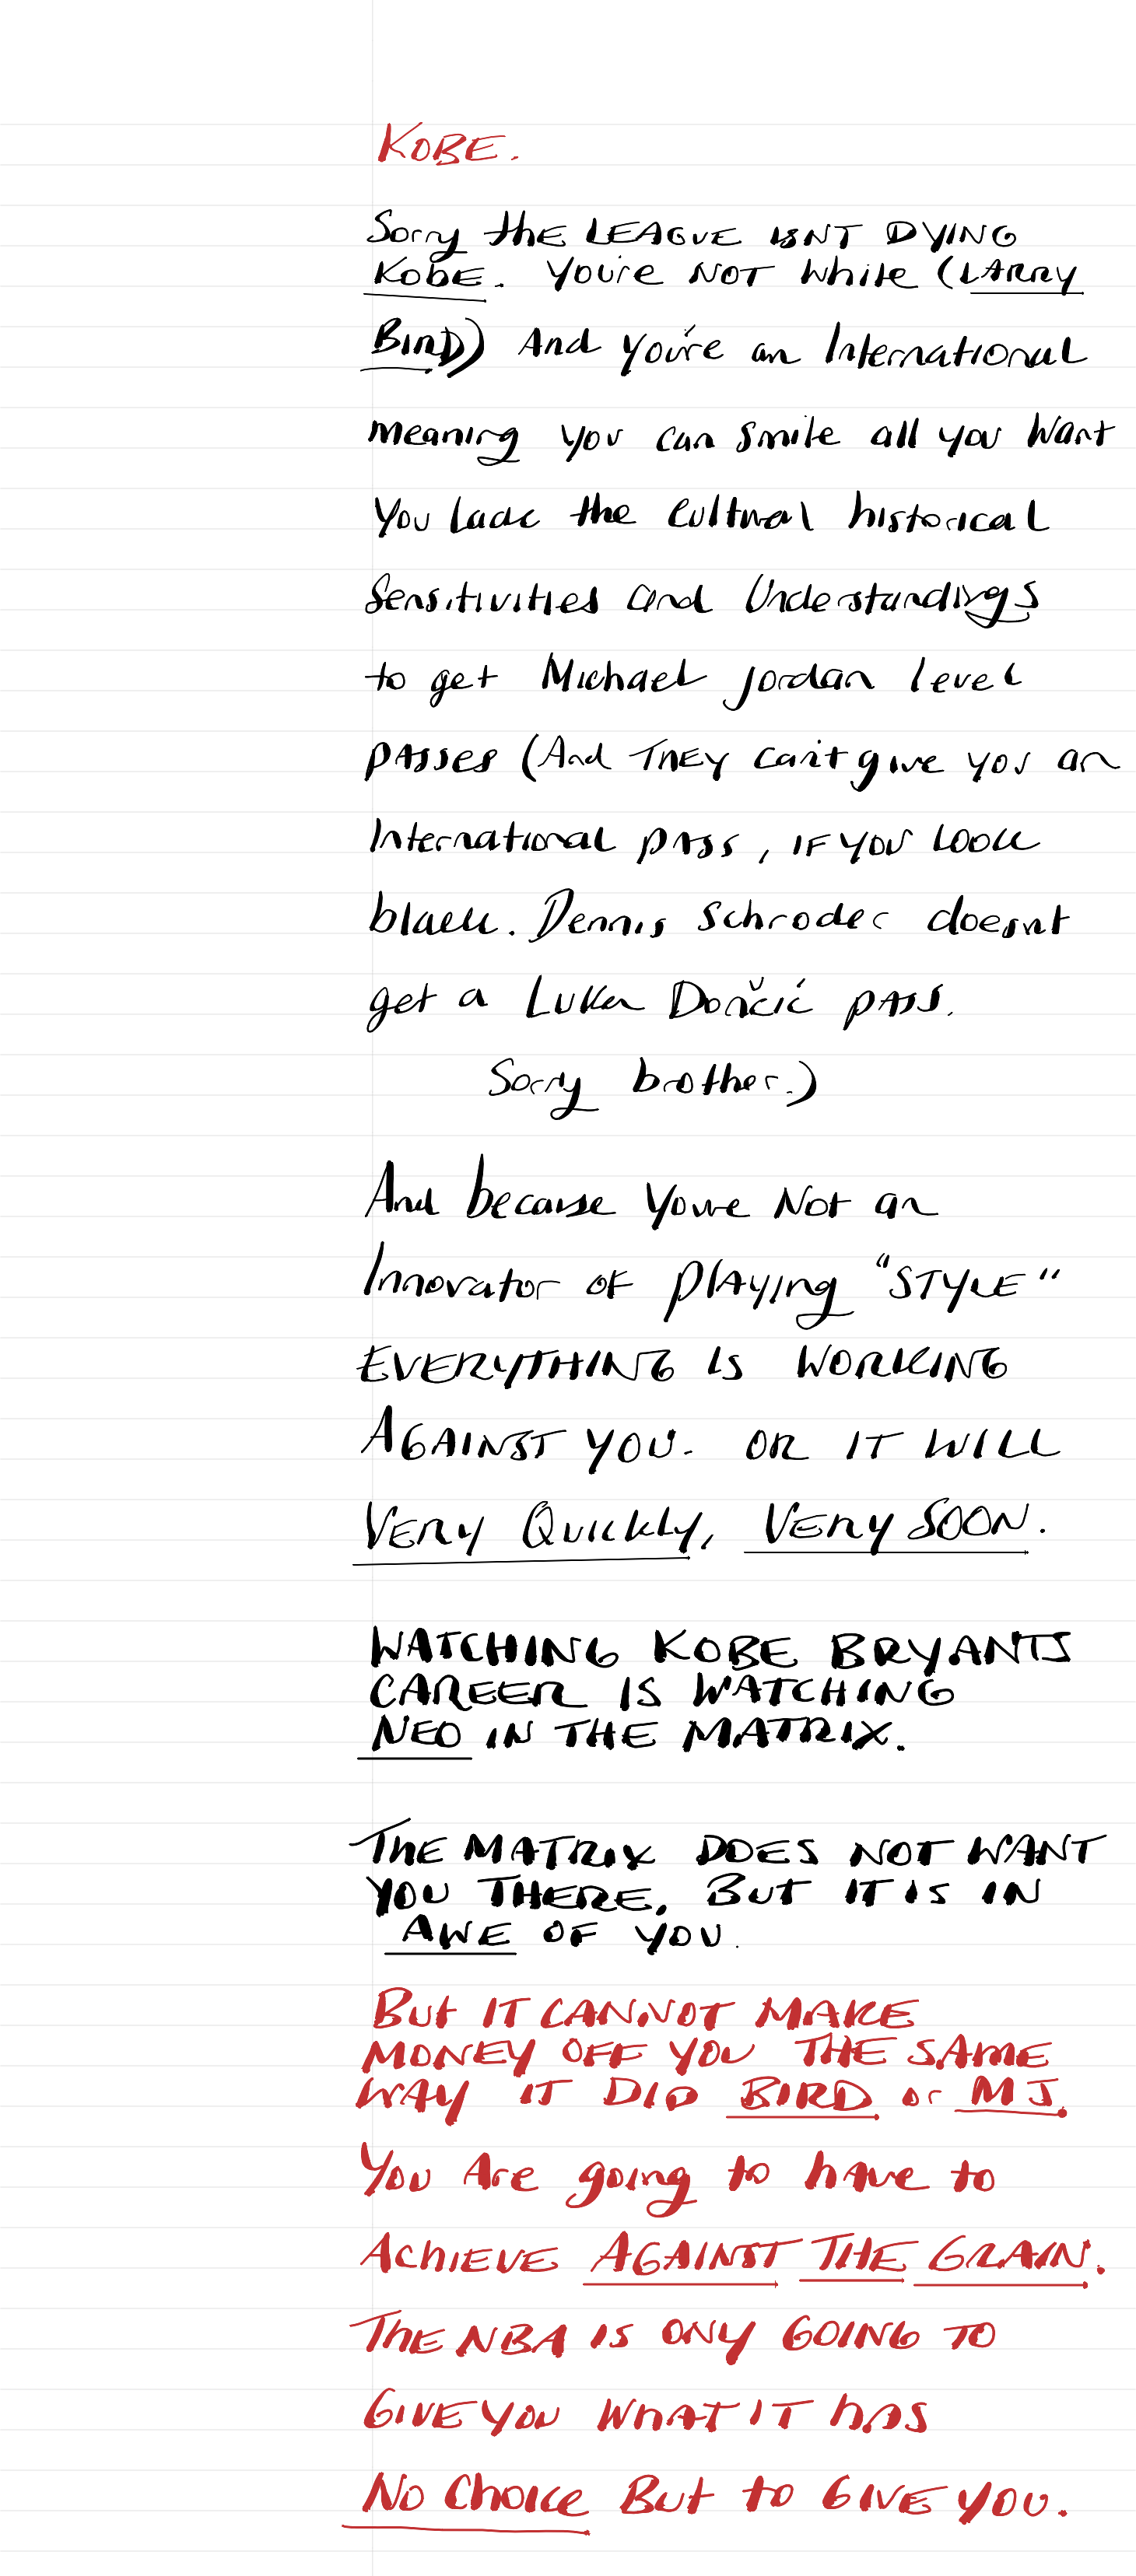 KOBE.
Sorry the LEAGUE ISNT DYING
KOBE. You're NOT white (LARRY
BIRD) And you're an International
meaning you can smile all you want
You lack the cultural historical
Sensitivities and Understandings
to get Michael Jordan level
passes (And THEY can't give you an
International pass, IF YOU LOOK
black. Dennis Schroder doesnt
get a Luka Dončić pass.
Sorry brother.)
And because You're Not an
Innovator of playing "STYLE"
EVERYTHING IS WORKING
AGAINST YOU. OR IT WILL
VERY QUICKLY, VERY SOON.
WATCHING KOBE BRYANTS
CAREER IS WATCHING
NEO IN THE MATRIX.
THE MATRIX DOES NOT WANT
YOU THERE. BUT IT IS IN
AWE OF YOU.
BUT IT CANNOT MAKE
MONEY OFF YOU THE SAME
WAY IT DID BIRD or MJ.
You Are going to have to
ACHIEVE AGAINST THE GRAIN.
THE NBA IS ONLY GOING TO
GIVE YOU WHAT IT HAS
NO Choice But to GIVE YOU.